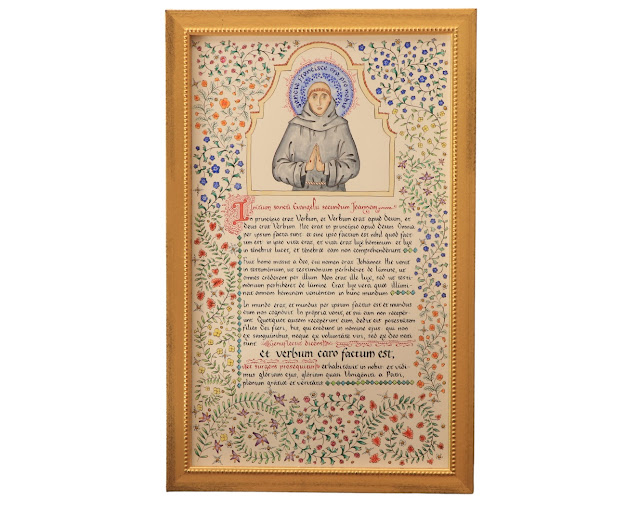 Sancte Francisce ora pro nobis
Initium sancti Evangelii secundum Joannem
In principio erat Verbum, et Verbum erat apud Deum, et
Deus erat Verbum. Hoc erat in principio apud Deum. Omnia
per ipsum facta sunt: et sine ipso factum est nihil quod fact-
um est: in ipso vita erat, et vita erat lux hominum: et lux
in tenebris lucet, et tenebræ eam non comprehenderunt.
Fuit homo missus a Deo, cui nomen erat Johannes. Hic venit
in testimonium, ut testimonium perhiberet de lumine, ut
omnes crederent per illum. Non erat ille lux, sed ut testi-
monium perhiberet de lumine. Erat lux vera quæ illumi-
nat omnem hominem venientem in hunc mundum
In mundo erat, et mundus per ipsum factus est et mundus
eum non cognovit. In propria venit, et sui eum non recepe-
runt. Quotquot autem receperunt eum, dedit eis potestatem
filios Dei fieri, his, qui credunt in nomine ejus: qui non
ex sanguinibus, neque ex voluntate viri, sed ex Deo nati
sunt. Genuflectit dicens:
et verbum caro factum est,
et surgens prosequitur: et habitavit in nobis: et vidi-
mus gloriam ejus, gloriam quasi Unigeniti a Patri,
plenum gratiæ et veritatis